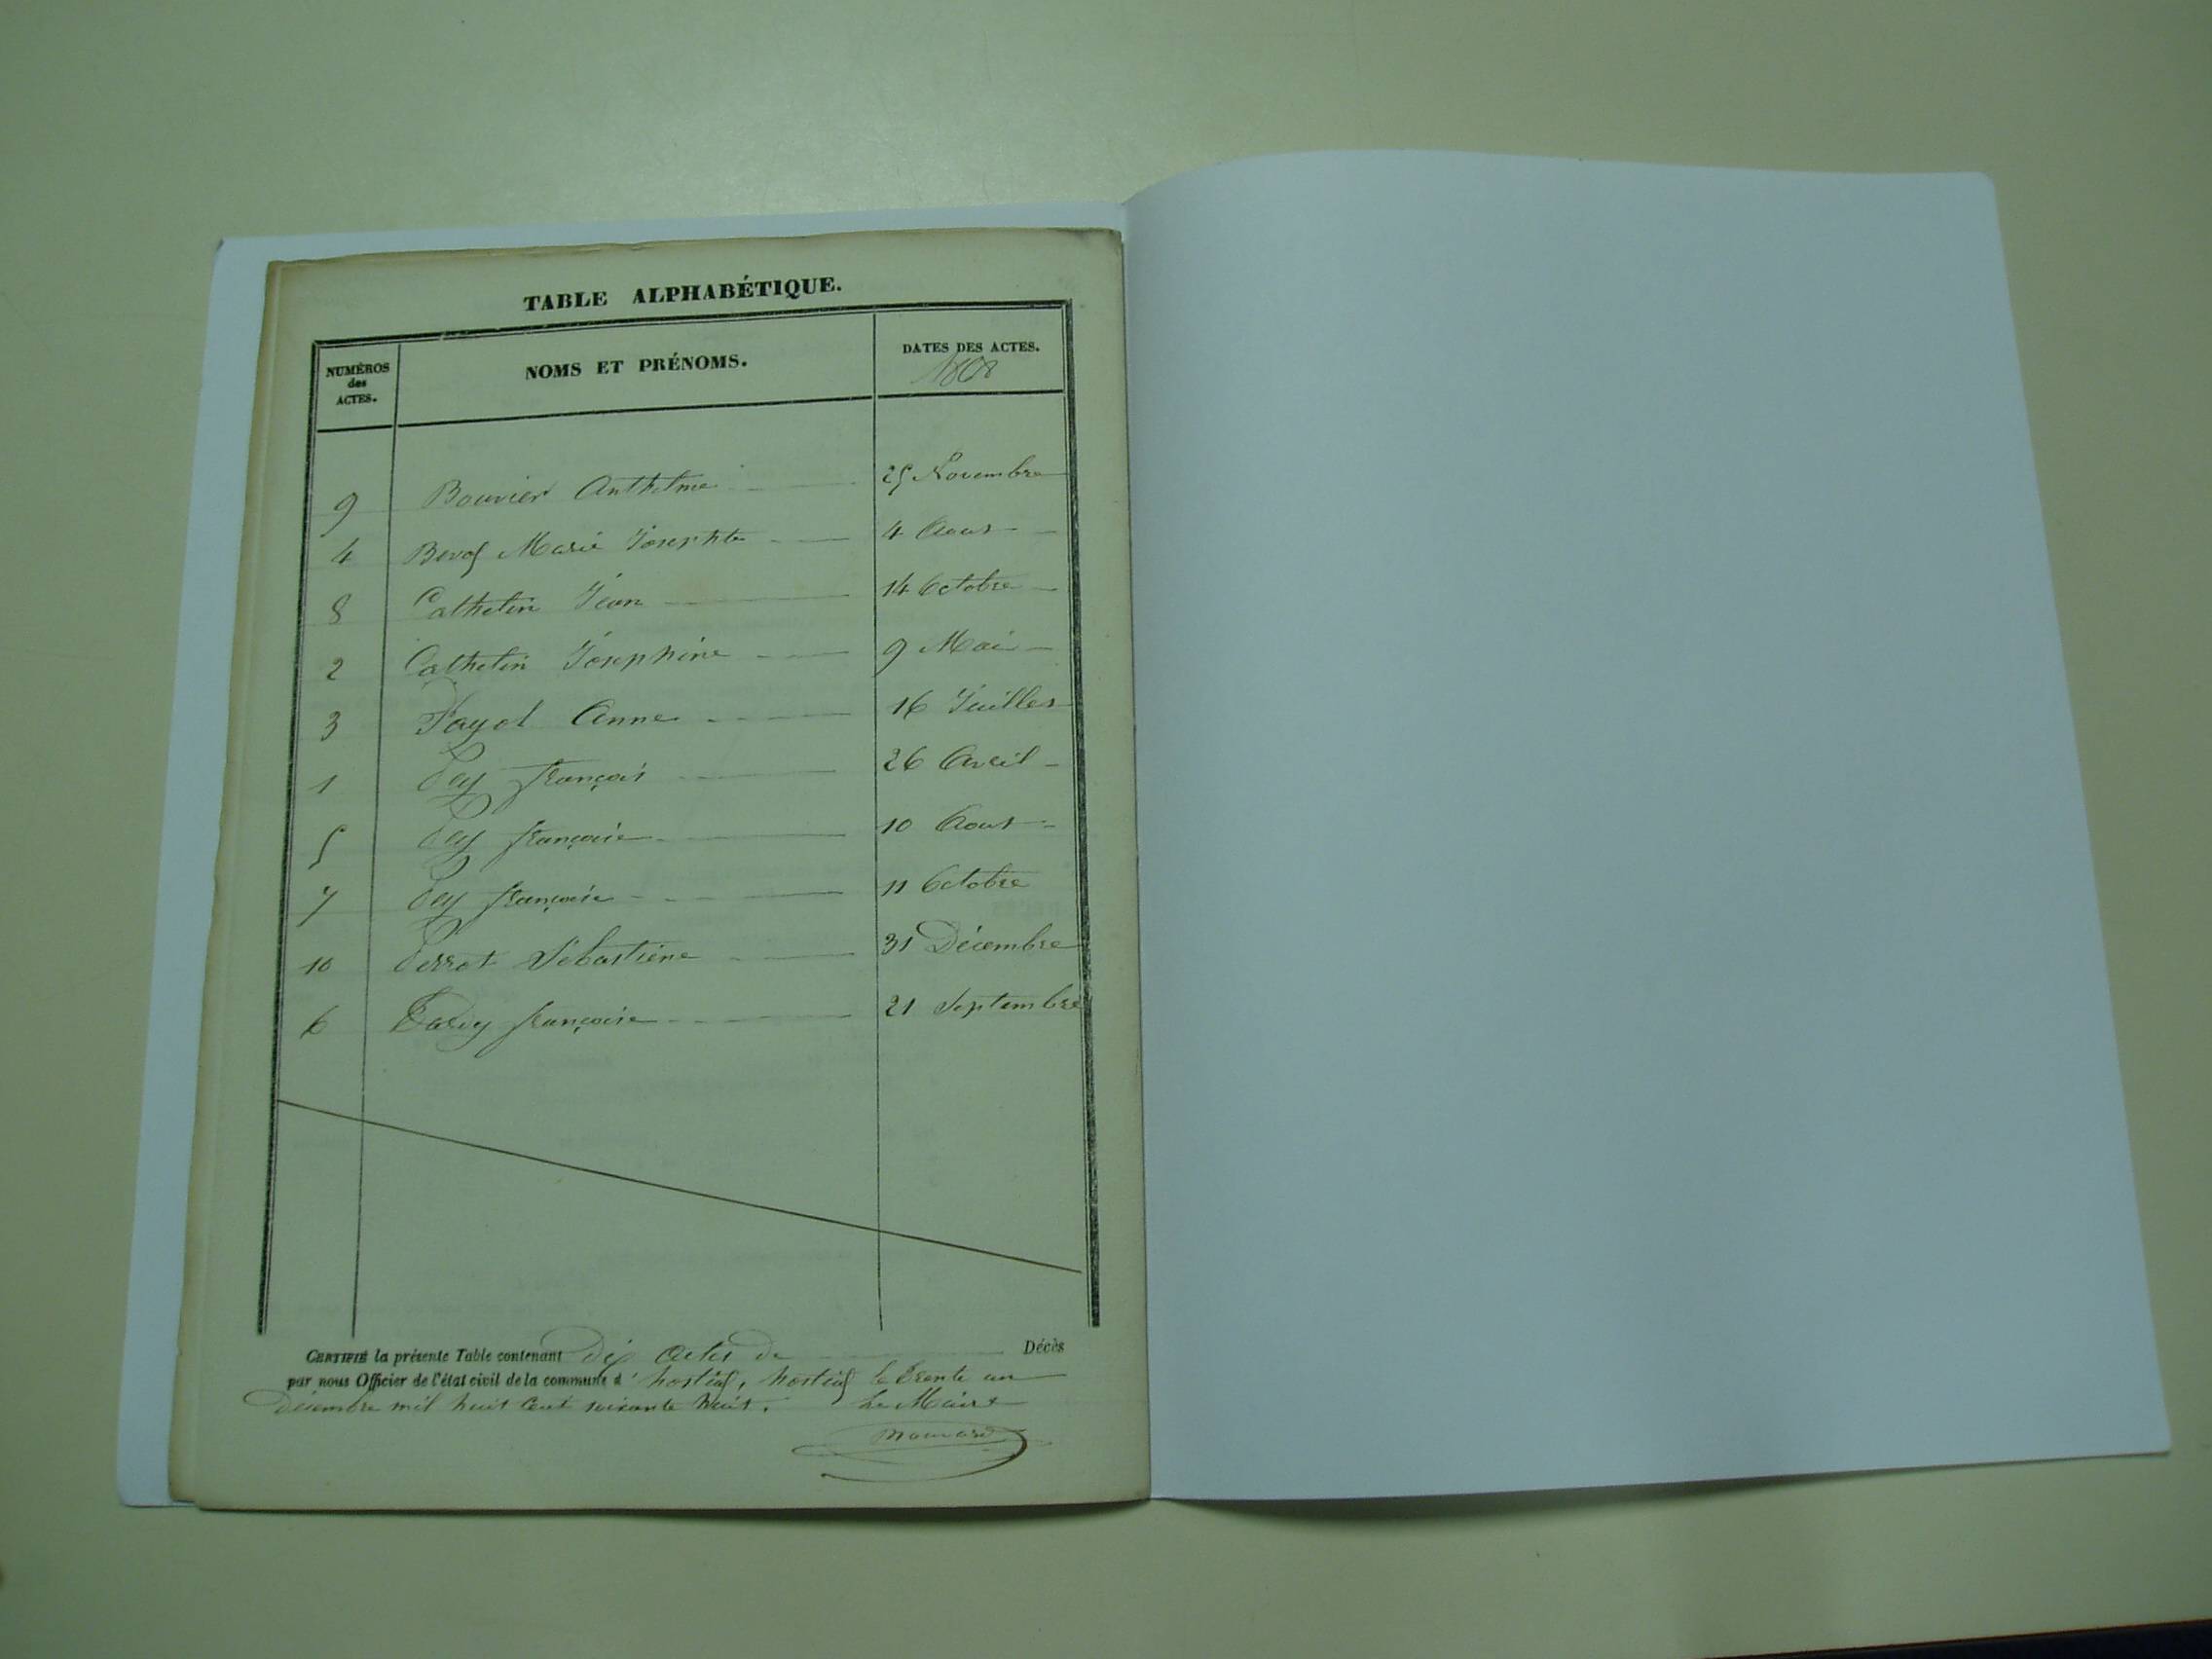 TABLE ALPHABÉTIQUE.
NUMÉROS des ACTES. NOMS ET PRÉNOMS. DATES DES ACTES.
1868
9 Bouvier Anthelme 25 Novembre
4 Marie Josephte 4 Aout
8 Cathelin Jean 14 Octobre
2 Cathelin Joséphine 9 Mai
3 Payot Anne 16 Juillet
1 Pey françois 26 Avril
5 Pey françoise 10 Aout
7 Pey françoise 11 Octobre
10 Perrot Sébastiène 31 Décembre
6 Tardy françoise 21 Septembre
CERTIFIÉ la présente Table contenant dix actes de Décès
par nous Officier de l'état civil de la commune d'hostias, hostias le trente un
décembre mil huit cent soixante huit. Le Maire